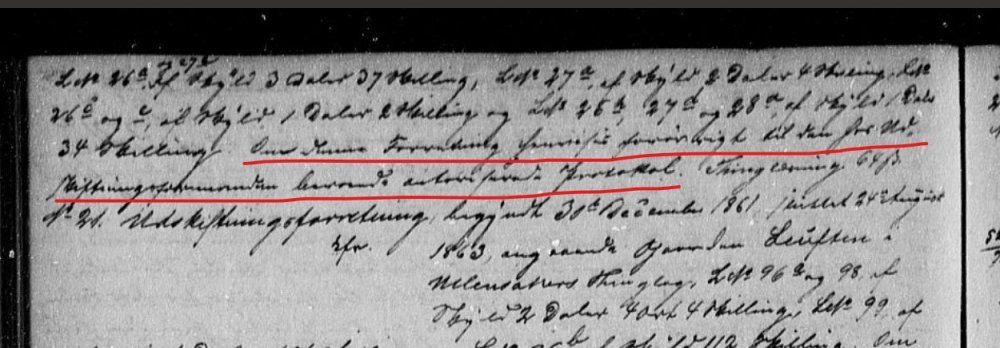 L.Nr 26a, 27d af Skyld 3 Daler 37 Skilling, L.Nr 27a, af Skyld 2 Daler 4 Skilling, L.Nr
26 og af Skyld 1 Daler 2 Skilling og L.Nr 26b, 27 og 28 af Skyld 1 Daler
34 Skilling. Om denne Forretning henvises forøvrigt til den hos Ud-
skiftningsformanden beroende autoriserede Protokol. Thinglæsning 64 ß.
No 21. Udskiftningsforretning, begyndt 30te December 1861, sluttet 24de August
1863, angaaende Gaarden Leuften i
Ullensakers Thinglag, L.No 96a og 98, af
Skyld 2 Daler 4 Ort 4 Skilling, L.No 99, af
af Skyld 112 Skilling. Om